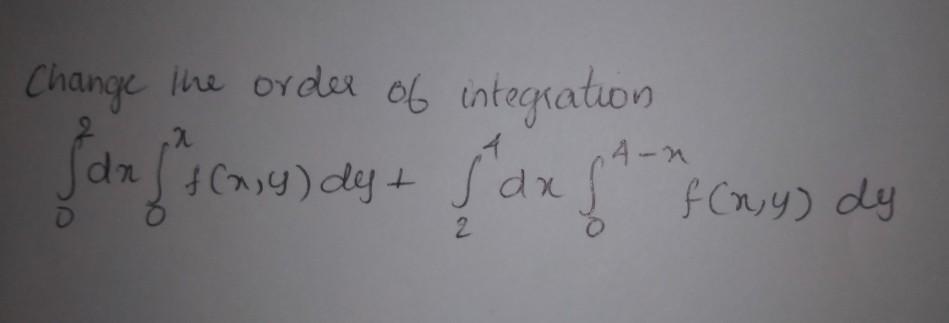 Change the order of integration
∫₀² dx ∫₀ˣ f(x,y) dy + ∫₂⁴ dx ∫₀⁴⁻ˣ f(x,y) dy